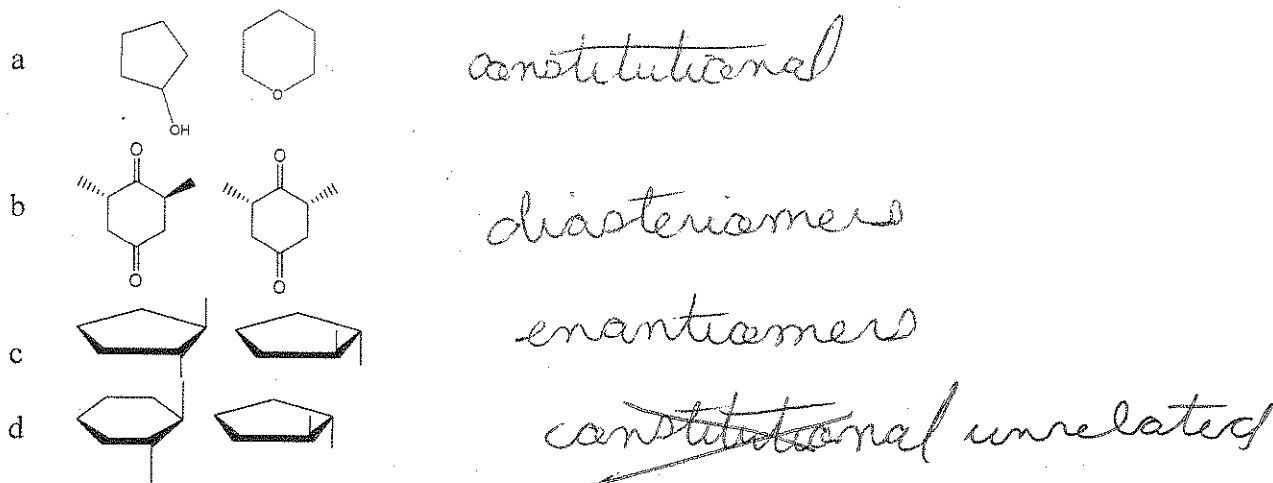 a
OH
O
constitutional
b
O
O
O
O
diasteriomers
c
enantiomers
d
constitutional unrelated